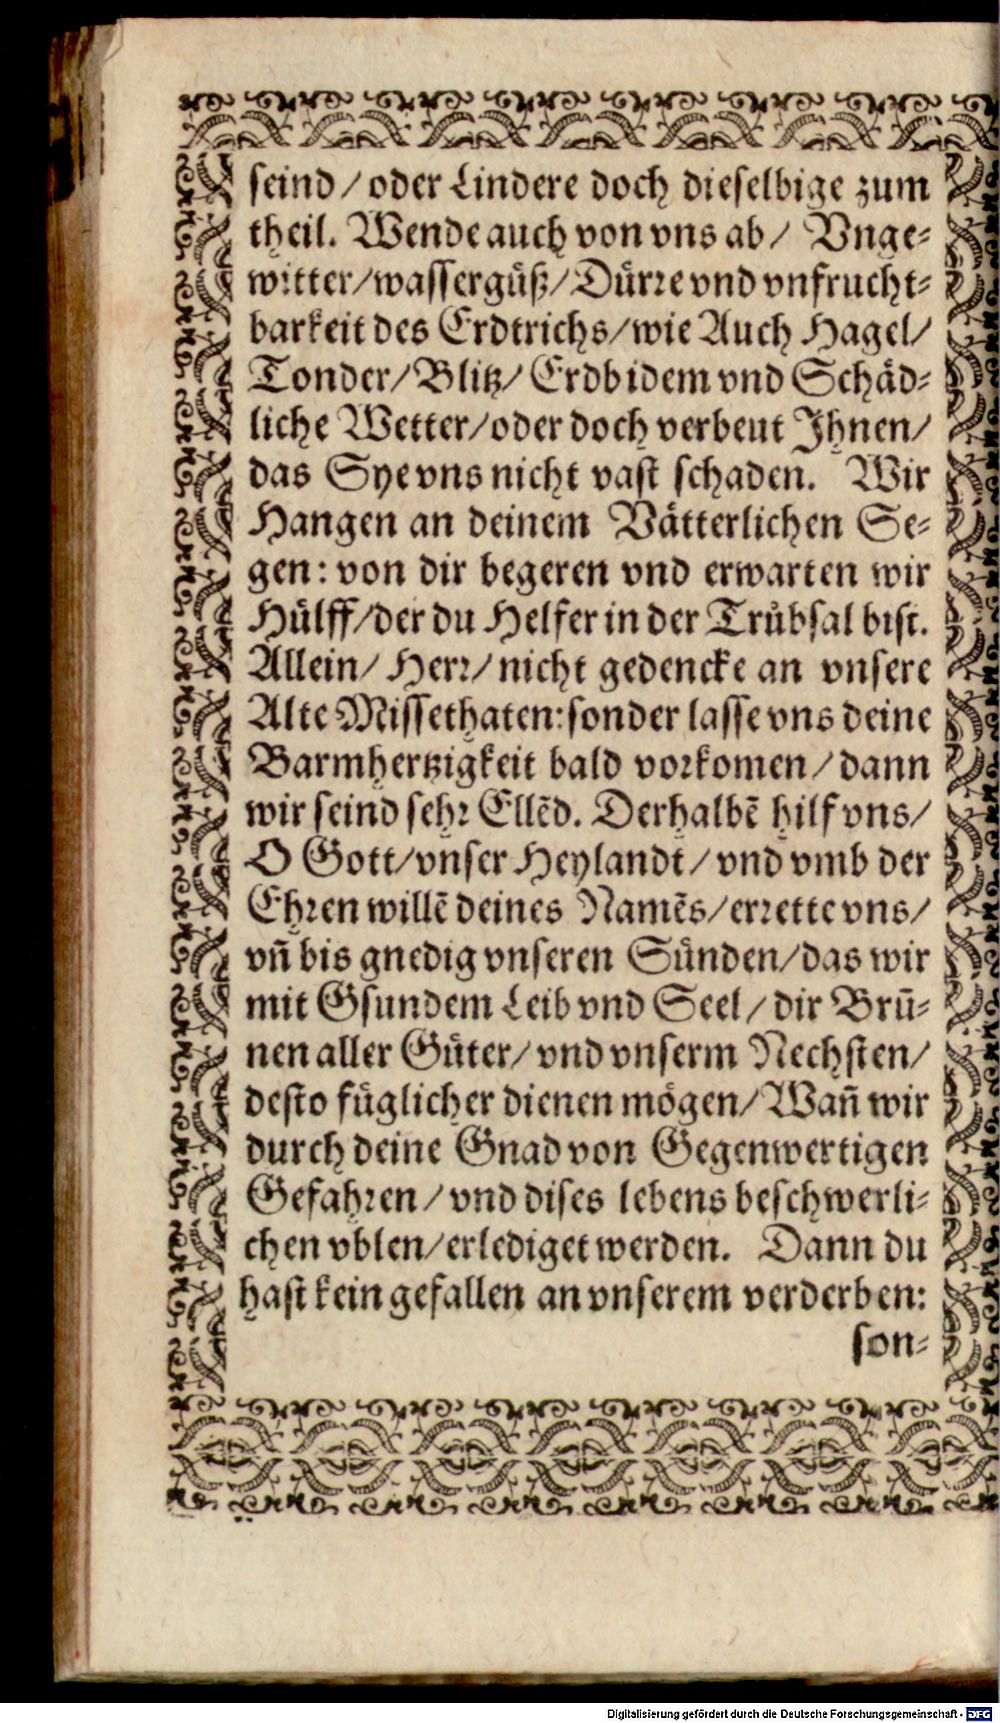 seind / oder Lindere doch dieselbige zum
theil. Wende auch von vns ab / Vnge⸗
witter/wassergüß/Dürre vnd vnfrucht⸗
barkeit des Erdtrichs/wie Auch Hagel/
Tonder/Blitz/ Erdbidem vnd Schäd⸗
liche Wetter/oder doch verbeut Jhnen/
das Sye vns nicht vast schaden. Wir
Hangen an deinem Vätterlichen Se⸗
gen: von dir begeren vnd erwarten wir
Hülff/der du Helfer in der Trübsal bist.
Allein/ Herr/ nicht gedencke an vnsere
Alte Missethaten: sonder lasse vns deine
Barmhertzigkeit bald vorkomen / dann
wir seind sehr Ellēd. Derhalbē hilf vns/
O Gott/vnser Heylandt / vnd vmb der
Ehren willē deines Namēs/errette vns/
vñ bis gnedig vnseren Sünden/das wir
mit Gsundem Leib vnd Seel / dir Brū⸗
nen aller Güter/ vnd vnserm Nechsten/
desto füglicher dienen mögen/Wañ wir
durch deine Gnad von Gegenwertigen
Gefahren / vnd dises lebens beschwerli⸗
chen vblen/erlediget werden. Dann du
hast kein gefallen an vnserem verderben:
son⸗
Digitalisierung gefördert durch die Deutsche Forschungsgemeinschaft - DFG